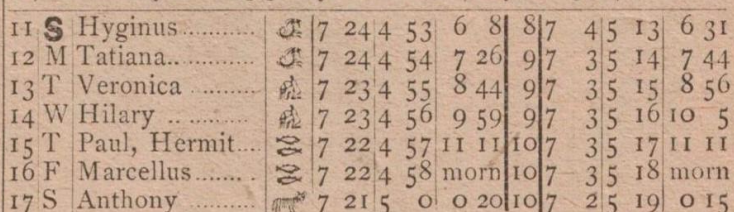 11 S Hyginus........... 7 24 4 53 6 8 8 7 4 5 13 6 31
12 M Tatiana............ 7 24 4 54 7 26 9 7 3 5 14 7 44
13 T Veronica .......... 7 23 4 55 8 44 9 7 3 5 15 8 56
14 W Hilary ............ 7 23 4 56 9 59 9 7 3 5 16 10 5
15 T Paul, Hermit.... 7 22 4 57 11 11 10 7 3 5 17 11 11
16 F Marcellus........ 7 22 4 58 morn 10 7 3 5 18 morn
17 S Anthony ......... 7 21 5 0 0 20 10 7 2 5 19 0 15